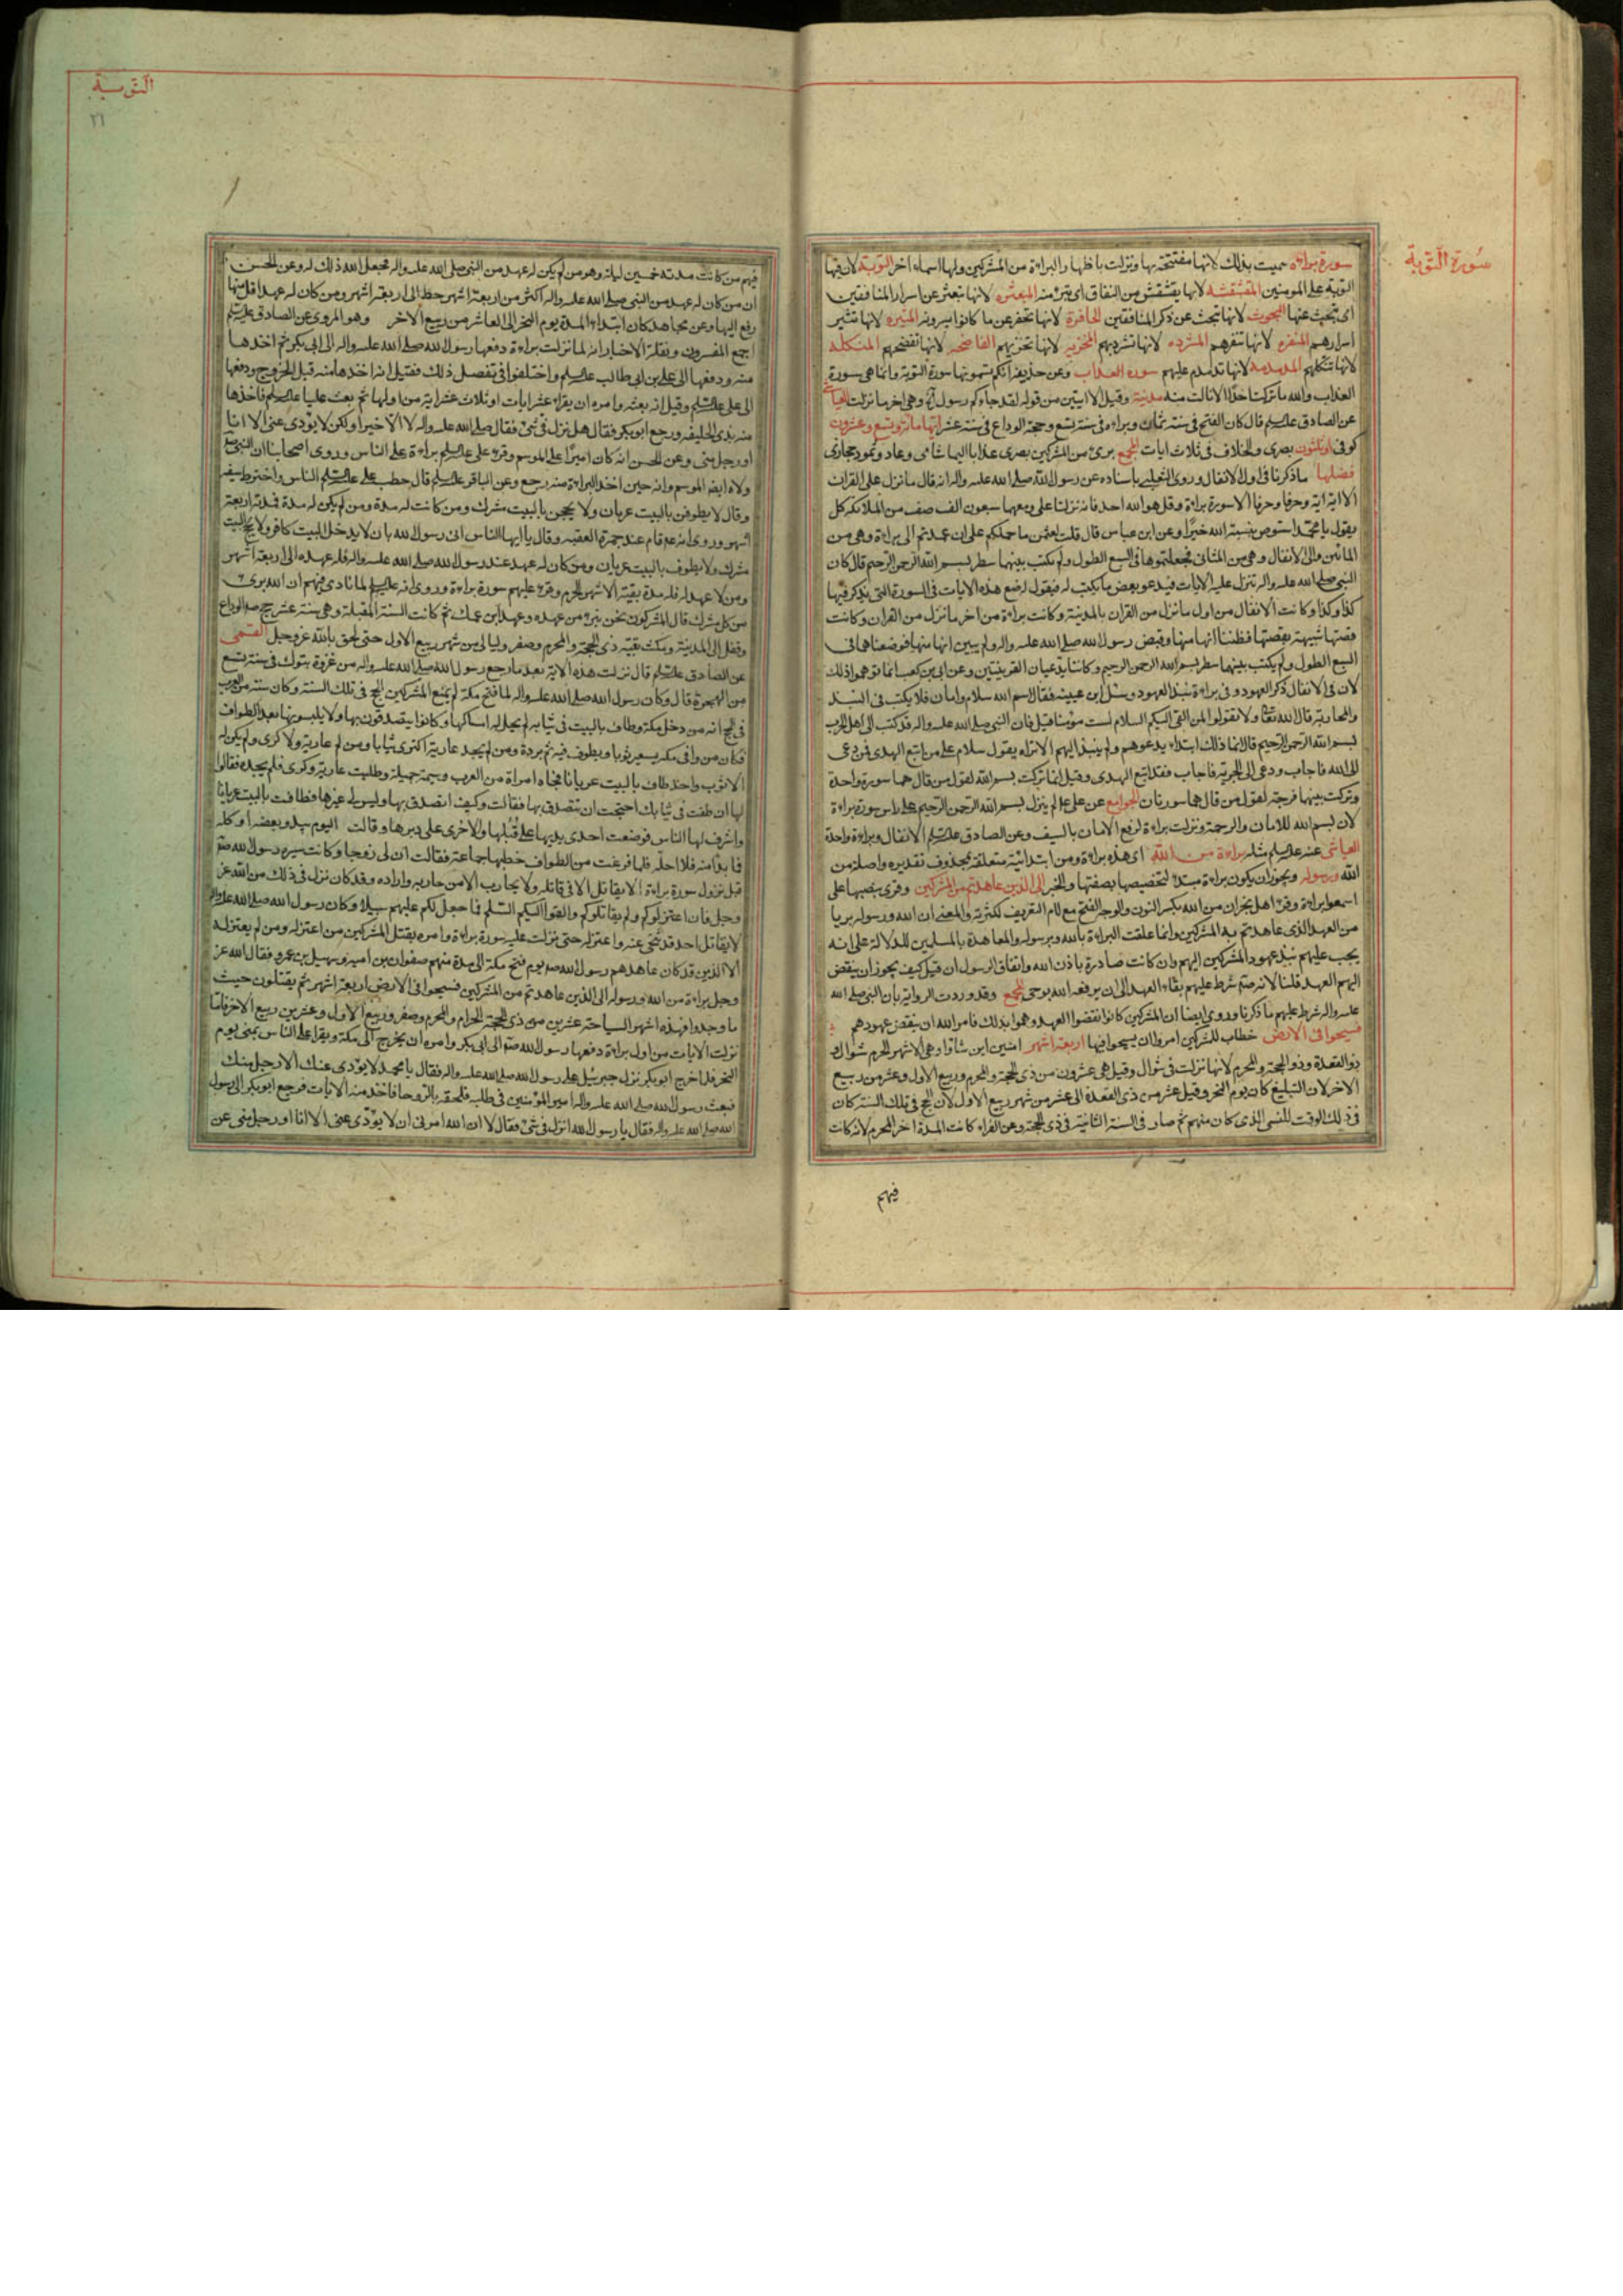 سورة التوبة
سورة براءة سميت بذلك لانها مفتتحة بها ونزلت باظهار البراءة من المشركين ولها اسماء اخر التوبة لان فيها
التوبة على المومنين المقشقشه لانها يقشقش من النفاق اى يتبرء منه المبعثره لانها تبعثر عن اسرار المنافقين
اى تبحث عنها البحوث لانها تبحث عن ذكر المنافقين الحافرة لانها تحفر عن ما كانوا يسرونه المثيره لانها تثير
اسرارهم المنفره لانها تنفرهم المشرده لانها تشردبهم المخزيه لانها تخزيهم الفاضحه لانها تفضحهم المنكله
لانها تنكلهم المدمدمه لانها تدمدم عليهم سوره العذاب وعن حذيفه انكم تسمونها سورة التوبة وانما هى سورة
العذاب والله ما تركت احدا الا نالت منه مدنية وقيل الا ايتين من قوله لقد جاءكم رسول وهى اخر ما نزلت العياشى
عن الصادق عليه السلم قال كان الفتح فى سنة ثمان وبراءة فى سنة تسع وحجة الوداع فى سنة عشر ايتها مائة وتسع وعشرون
كوفى او ثلثون بصرى والخلاف فى ثلاث ايات المجمع برىء من المشركين بصرى عذابا اليما شامى وعاد وثمود حجازى
فضلها ما ذكرنا فى اول الانفال وروى الثعلبى باسناده عن رسول الله صلى الله عليه واله انه قال ما نزل على القران
الا اية اية وحرفا وحرفا الا سورة براءة وقل هو الله احد فانه نزلتا على ومعهما سبعون الف صف من الملائكه كل
يقول يا محمد استوص بنسبة الله خيرا وعن ابن عباس قال قلت لعثمن ما حملكم على ان عمدتم الى براءة وهى من
المائين والى الانفال وهى من المثانى فجعلتموها فى السبع الطول ولم تكتب بينهما سطر بسم الله الرحمن الرحيم قال كان
النبى صلى الله عليه واله تنزل عليه الايات فيدعو بعض من يكتب له فيقول له ضع هذه الايات فى السورة التى يذكر فيها
كذا وكذا وكانت الانفال من اول ما نزل من القران بالمدينة وكانت براءة من اخر ما نزل من القران وكانت
قصتها شبيهة بقصتها فظننا انها منها وقبض رسول الله صلى الله عليه واله ولم يبين انها منها فوضعناهما فى
السبع الطول ولم يكتب بينهما سطر بسم الله الرحمن الرحيم وكانتا تدعيان القرينتين وعن ابى بن كعب انما توهموا ذلك
لان فى الانفال ذكر العهود وفى براءة نبذ العهود وسئل ابن عيينه فقال اسم الله سلام وامان فلا يكتب فى النبذ
والمحاربة قال الله تعالى ولا تقولوا لمن القى اليكم السلام لست مؤمنا قيل فان النبى صلى الله عليه واله قد كتب الى اهل الحرب
بسم الله الرحمن الرحيم قال انما ذلك ابتداء يدعوهم ولم ينبذ اليهم الا تراه يقول سلام على من اتبع الهدى فمن دعى
الى الله فاجاب ودعى الى الجزية فاجاب فقد اتبع الهدى وقيل انما تركت بسم الله لقول من قال هما سورة واحدة
وتركت بينهما فرجة لقول من قال هما سورتان الجوامع عن على ع لم ينزل بسم الله الرحمن الرحيم على راس سورة براءة
لان بسم الله للامان والرحمة ونزلت براءة لرفع الامان بالسيف وعن الصادق عليه السلم الانفال وبراءة واحدة
العياشى عنه عليه السلم مثله براءة من الله اى هذه براءة ومن ابتدائية متعلقة بمحذوف تقديره واصلة من
الله ورسوله ويجوز ان يكون براءة مبتدا لتخصيصها بصفتها والخبر الى الذين عاهدتم من المشركين وقرى بنصبها على
اسمعوا براءة وقرء اهل نجران من الله بكسر النون والوجه الفتح مع لام التعريف لكثرته والمعنى ان الله ورسوله بريا
من العهد الذى عاهدتم به المشركين وانما علقت البراءة بالله وبرسوله والمعاهدة بالمسلمين للدلالة على انه
يجب عليهم نبذ عهود المشركين اليهم وان كانت صادرة باذن الله واتفاق الرسول ان قيل كيف يجوز ان ينقض
اليهم العهد قلنا لانه ص شرط عليهم بقاء العهد الى ان يرفعه الله بوحى المجمع وقد وردت الرواية بان النبى صلى الله
عليه واله شرط عليهم ما ذكرنا وروى ايضا ان المشركين كانوا نقضوا العهد وهموا بذلك فامر الله ان ينقض عهودهم
فسيحوا فى الارض خطاب للمشركين امروا ان يسيحوا فيها اربعة اشهر امنين اين شاؤا وهى الاشهر الحرم شوال و
ذو القعدة وذو الحجة والمحرم لانها نزلت فى شوال وقيل هى عشرون من ذى الحجة والمحرم وربيع الاول وعشر من ربيع
الاخر لان التبليغ كان يوم النحر وقيل عشر من ذى القعدة الى عشر من شهر ربيع الاول لان الحج فى تلك السنة كان
فى ذلك الوقت للنسى الذى كان منهم ثم صار فى السنة الثانية فى ذى الحجة وعن الفراء كانت المدة اخر المحرم لانه كانت
فيهم
التوبة
٢١
فيهم من كانت مدته خمسين ليلة وهو من لم يكن له عهد من النبى صلى الله عليه واله فجعل الله ذلك له وعن الحسن
ان من كان له عهد من النبى صلى الله عليه واله اكثر من اربعة اشهر حط الى اربعة اشهر ومن كان له عهد اقل منها
رفع اليها وعن مجاهد كان ابتداء المدة يوم النحر الى العاشر من ربيع الاخر وهو المروى عن الصادق عليه السلم
اجمع المفسرون ونقلة الاخبار انه لما نزلت براءة دفعها رسول الله صلى الله عليه واله الى ابى بكر ثم اخذها
منه ودفعها الى على بن ابى طالب عليه السلم واختلفوا فى تفصيل ذلك فقيل انه اخذها منه قبل الخروج ودفعها
الى على عليه السلم وقيل انه بعثه وامره ان يقراء عشر ايات او ثلاث عشر اية من اولها ثم بعث عليا عليه السلم فاخذها
منه بذى الحليفه ورجع ابو بكر فقال هل نزل فى شىء فقال صلى الله عليه واله لا الا خيرا ولكن لا يؤدى عنى الا انا
او رجل منى وعن الحسن انه كان اميرا على الموسم وقرء على عليه السلم براءة على الناس وروى اصحابنا ان النبى ص
ولاه ايضا الموسم وانه حين اخذ البراءة منه رجع وعن الباقر عليه السلم قال خطب على عليه السلم الناس واخترط سيفه
وقال لا يطوفن بالبيت عريان ولا يحجن بالبيت مشرك ومن كانت له مدة ومن لم يكن له مدة فمدته اربعة
اشهر وروى انه ع قام عند جمرة العقبه وقال يا ايها الناس انى رسول الله بان لا يدخل البيت كافر ولا يحج البيت
مشرك ولا يطوف بالبيت عريان ومن كان له عهد عند رسول الله صلى الله عليه واله فله عهده الى اربعة اشهر
ومن لا عهد له فله مدة بقية الاشهر الحرم وقرء عليهم سورة براءة وروى انه عليه السلم لما نادى فيهم ان الله برىء
من كل مشرك قال المشركون نحن نبرء من عهده وعهد ابن عمك ثم كانت السنة المقبلة وهى سنة عشر حج ص الوداع
وقفل الى المدينة ومكث بقية ذى الحجة والمحرم وصفر وليالى من شهر ربيع الاول حتى لحق بالله عز وجل القمى
عن الصادق عليه السلم قال نزلت هذه الاية بعد ما رجع رسول الله صلى الله عليه واله من غزوة تبوك فى سنة تسع
من الهجرة قال وكان رسول الله صلى الله عليه واله لما فتح مكة لم يمنع المشركين الحج فى تلك السنة وكان سنة من العرب
فى الحج انه من دخل مكة وطاف بالبيت فى ثيابه لم يحل له امساكها وكانوا يتصدقون بها ولا يلبسونها بعد الطواف
فكان من وافى مكة يستعير ثوبا ويطوف فيه ثم يرده ومن لم يجد عارية اكترى ثيابا ومن لم عارية ولا كرى ولم يكن له
الا ثوب واحد طاف بالبيت عريانا فجاءه امراة من العرب وسيمة جميلة وطلبت عارية وكرى فلم يجده فقالوا
لها ان طفت فى ثيابك احتجت ان تتصدقى بها فقالت وكيف اتصدق بها وليس لى غيرها فطافت بالبيت عريانا
واشرف لها الناس فوضعت احدى يديها على قبلها والاخرى على دبرها وقالت اليوم يبدو بعضه او كله
فما بدا منه فلا احله فلما فرغت من الطواف خطبها جماعة فقالت ان لى زوجا وكانت سيرة رسول الله ص
قبل نزول سورة براءة الا يقاتل الا فى قاتله ولا يحارب الا من حاربه واراده وقد كان نزل فى ذلك من الله عز
وجل فان اعتزلوكم ولم يقاتلوكم والقوا اليكم السلم فما جعل لكم عليهم سبيلا وكان رسول الله صلى الله عليه واله
لا يقاتل احد قد تنحى عنه واعتزله حتى نزلت عليه سورة براءة وامره بقتل المشركين من اعتزله ومن لم يعتزله
الا الذين قد كان عاهدهم رسول الله ص يوم فتح مكة الى مدة منهم صفوان بن امية وسهيل بن عمرو فقال الله عز
وجل براءة من الله ورسوله الى الذين عاهدتم من المشركين فسيحوا فى الارض اربعة اشهر ثم يقتلون حيث
ما وجدوا فهذه اشهر السياحة عشرين من ذى الحجة الحرام والمحرم وصفر وربيع الاول وعشرين ربيع الاخر فلما
نزلت الايات من اول براءة دفعها رسول الله ص الى ابى بكر وامره ان يخرج الى مكة ويقراء على الناس بمنى يوم
النحر فلما خرج ابو بكر نزل جبرئيل على رسول الله صلى الله عليه واله فقال يا محمد لا يؤدى عنك الا رجل منك
فبعث رسول الله صلى الله عليه واله امير المؤمنين فى طلبه فلحقه بالروحا فاخذ منه الايات فرجع ابو بكر الى رسول
الله صلى الله عليه واله فقال يا رسول الله انزل فى شىء فقال لا ان الله امرنى ان لا يؤدى عنى الا انا او رجل منى عن